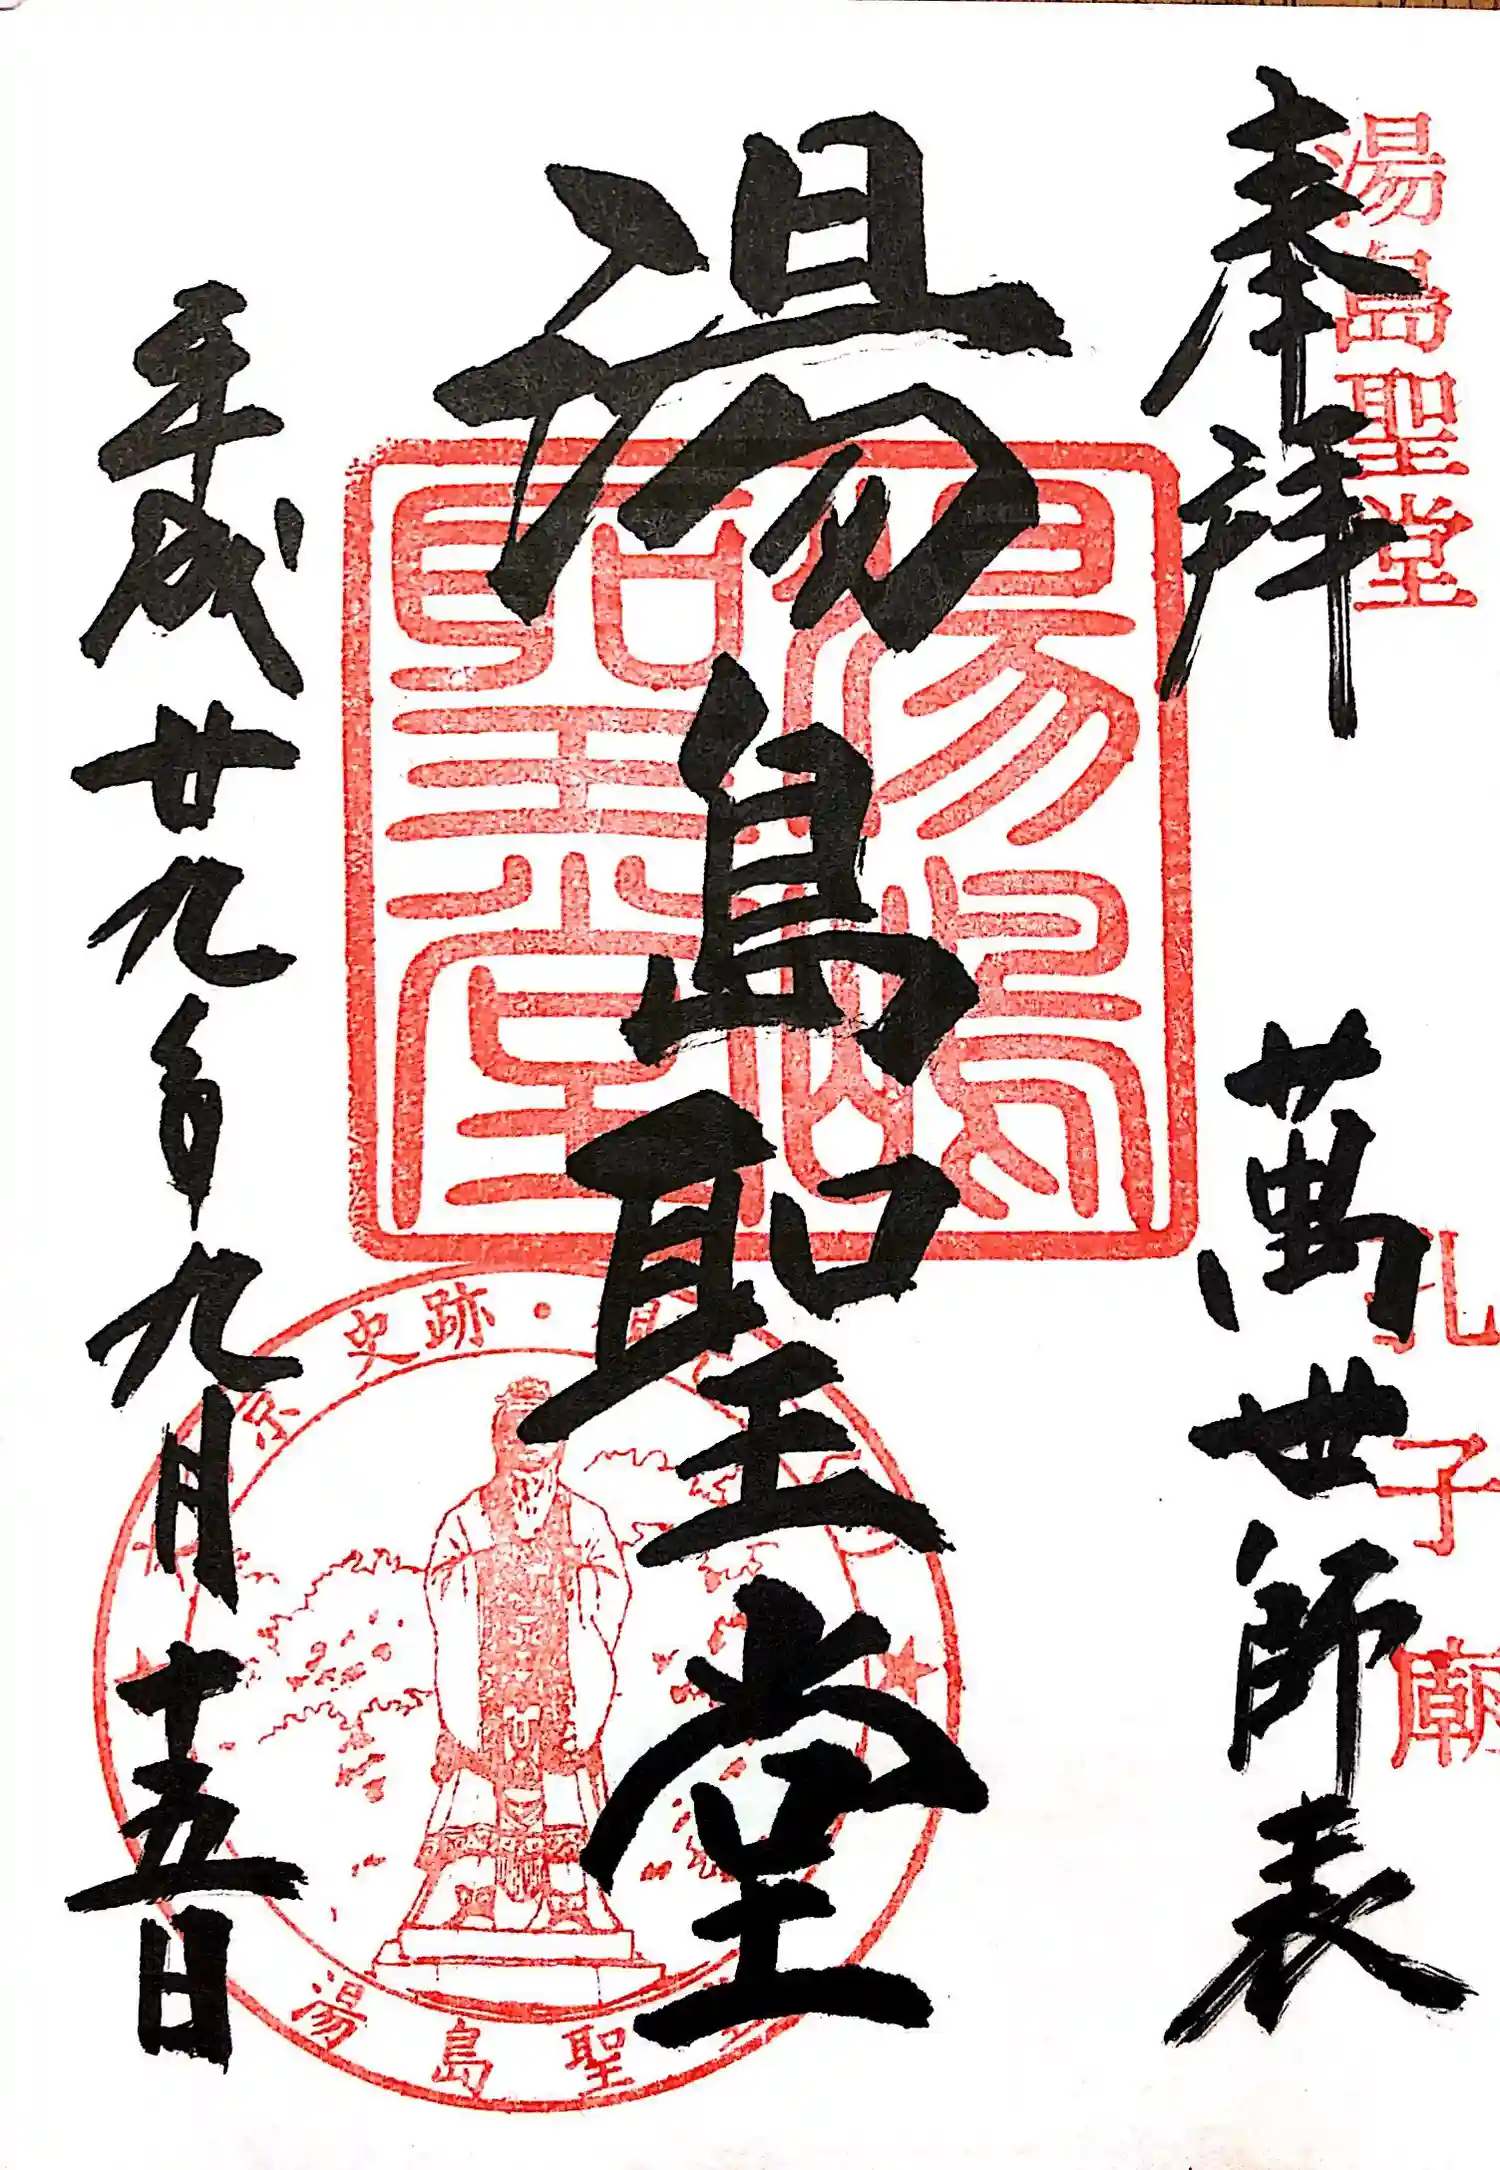 湯島聖堂
孔子廟
奉拝
萬世師表
湯島聖堂
湯嶋聖堂
平成廿九年九月十五日
京 史跡・
湯島聖